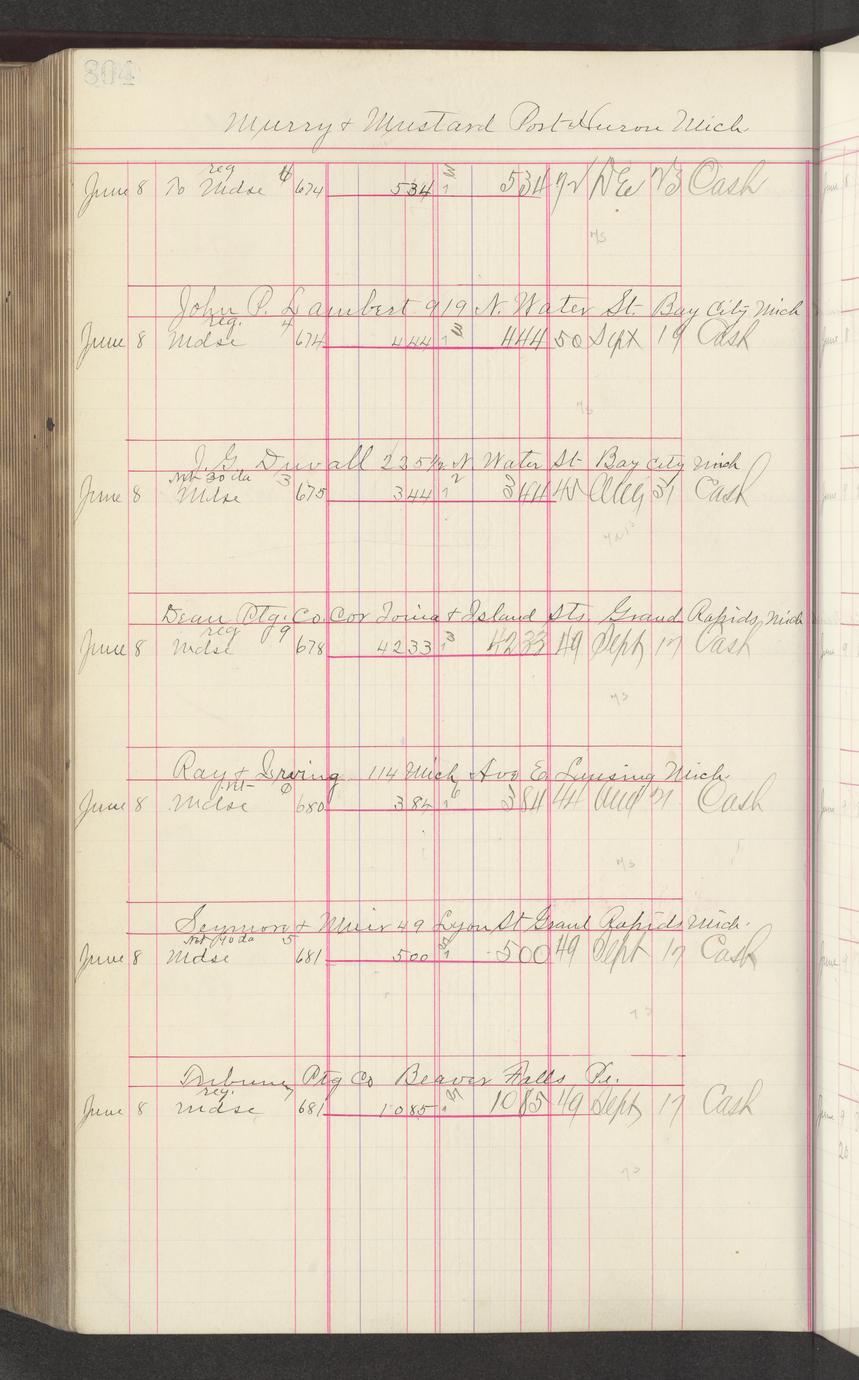 304
Murry & Mustard Port Huron Mich
reg 4
June 8 To Mdse 674 534 1 534 72 Dec 23 Cash
73
John P. Lambert 919 N. Water St. Bay City Mich
reg. 4
June 8 Mdse 674 444 1 444 50 Sept 19 Cash
73
J. G. Duvall 235½ N. Water St- Bay City Mich
Net 30 da 3 2
June 8 Mdse 675 344 1 344 45 Aug 31 Cash
Dean Ptg. Co. Cor Ionia & Island Sts. Grand Rapids, Mich
reg 9 3
June 8 Mdse 678 4233 1 4233 49 Sept 17 Cash
73
Ray & Irving 114 Mich Ave E. Lansing Mich
6
June 8 Mdse 680 384 1 384 44 Aug Cash
73
Seymore & Muir 49 Lyon St Grand Rapids Mich.
Net da 5
June 8 Mdse 681 500 1 500 49 Sept 17 Cash
73
Tribune Ptg Co Beaver Falls, Pa.
reg. 7
June 8 Mdse 681 1085 1 1085 49 Sept 17 Cash
73